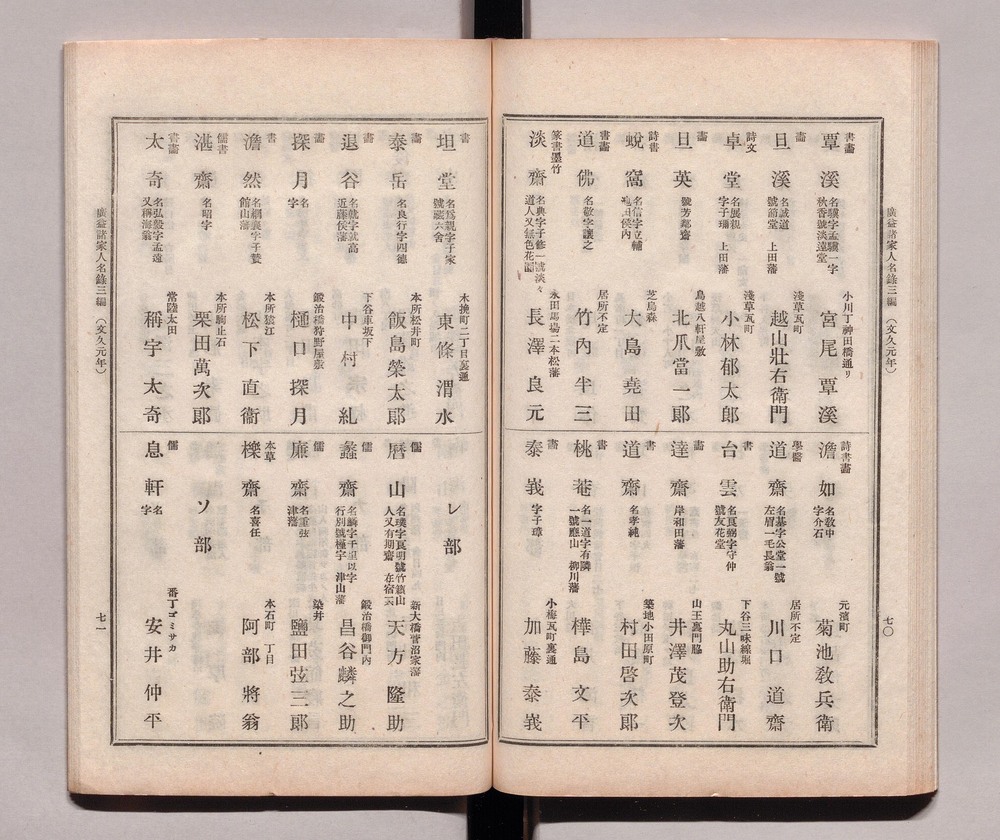 廣益諸家人名錄三編 (文久元年)
七〇
書畵
覃溪
名驥字孟驥一字
秋香號淡遠堂
小川丁神田橋通リ
宮尾覃溪
畵
旦溪
名誠道
號節堂 上田藩
淺草瓦町
越山壯右衛門
詩文
卓堂
名展親
字子瓓 上田藩
淺草瓦町
小林郁太郎
畵
旦英
號芳鄰齋
鳥越八軒屋敷
北爪當一郎
詩書
蛻窩
名信字立輔
龜田侯内
芝烏森
大島堯田
書畵
道佛
名敬字讓之
居所不定
竹内半三
篆書墨竹
淡齋
名典字子修一號淡々
道人又無色花園
永田馬場二本松藩
長澤良元
詩書畵
澹如
名教中
字介石
元濱町
菊池教兵衛
學醫
道齋
名基字公堂一號
左眉一毛長翁
居所不定
川口道齋
書
台雲
名良弼字守仲
號友花堂
下谷三味線堀
丸山助右衛門
畵
達齋
岸和田藩
山王裏門脇
井澤茂登次
書
道齋
名孝純
築地小田原町
村田啓次郎
書
桃菴
名一道字有隣
一號應山 柳川藩
樺島文平
畵
泰峩
字子璋
小梅瓦町裏通
加藤泰峩
書
坦堂
名爲親字子家
號礙六舍
木挽町二丁目裏通
東條渭水
畵
泰岳
名良行字四德
本所松井町
飯島榮太郎
書
退谷
名就字就高
近藤侯藩
下谷車坂下
中村糺
畵
探月
名
字
鍛冶橋狩野屋敷
樋口探月
書
澹然
名綱裳字子贊
館山藩
本所猿江
松下直衞
儒書
湛齋
名昭字
本所駒止石
栗田萬次郎
書畵
太奇
名弘毅字孟遠
又稱海翁
常陸太田
稱宇太奇
レ部
儒
曆山
名璞字良明號竹籟山
人又有期齋 在宿二六
新大橋菅沼家藩
天方隆助
儒
蠡齋
名麟字千里以字
行別號極字 津山藩
鍛治橋御門內
昌谷麟之助
儒
廉齋
名重弦
津藩
染井
鹽田弦三郞
本草
櫟齋
名喜任
本石町 丁目
阿部將翁
ソ部
儒
息軒
名
字
番丁ゴミサカ
安井仲平
廣益諸家人名錄三編 (文久元年)
七一